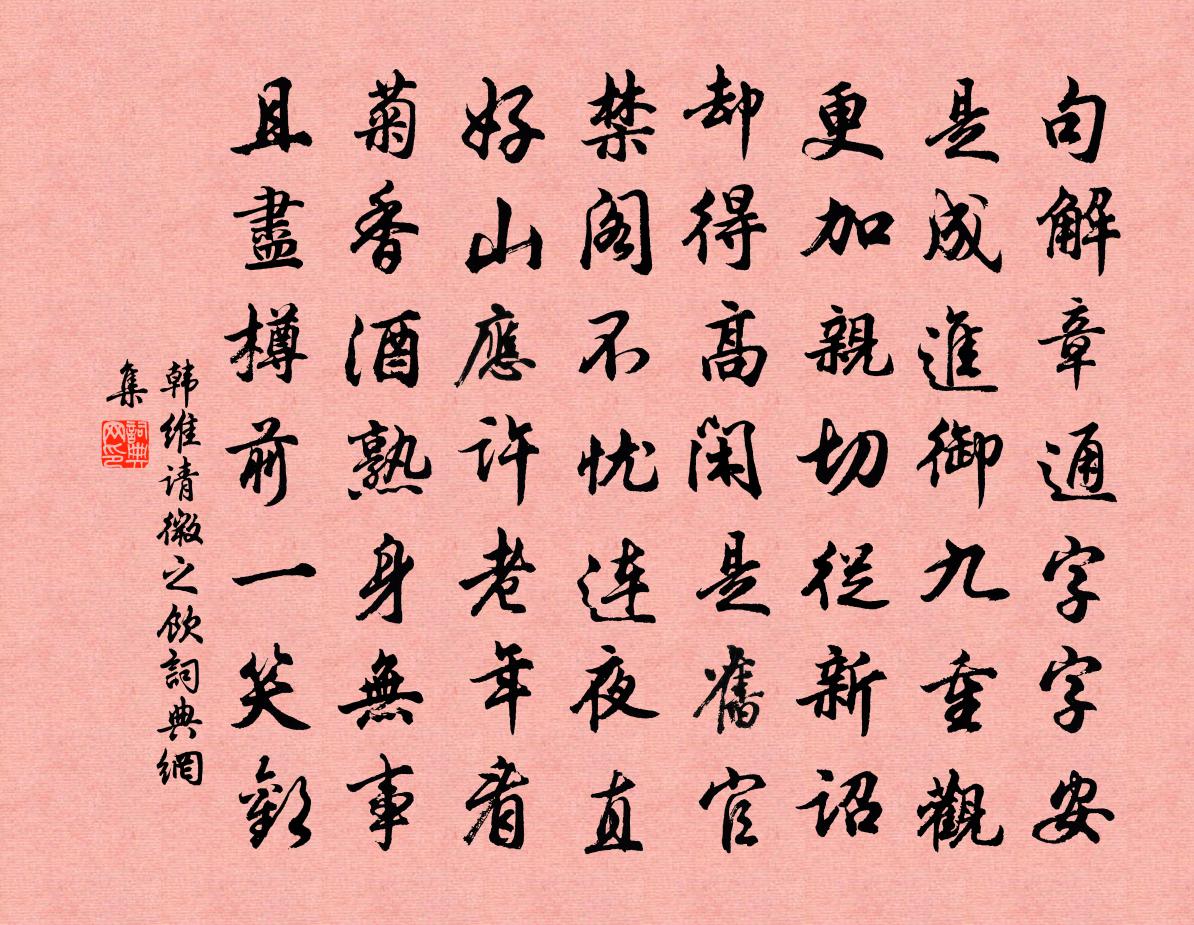 句解章通字字安
是成進御九重觀
更加親切從新詔
却得高闲是舊官
禁阁不忧连夜直
好山應许老年看
菊香酒熟身無事
且盡樽前一笑歡
韩维请微之饮詞典網
集
詞典
网印